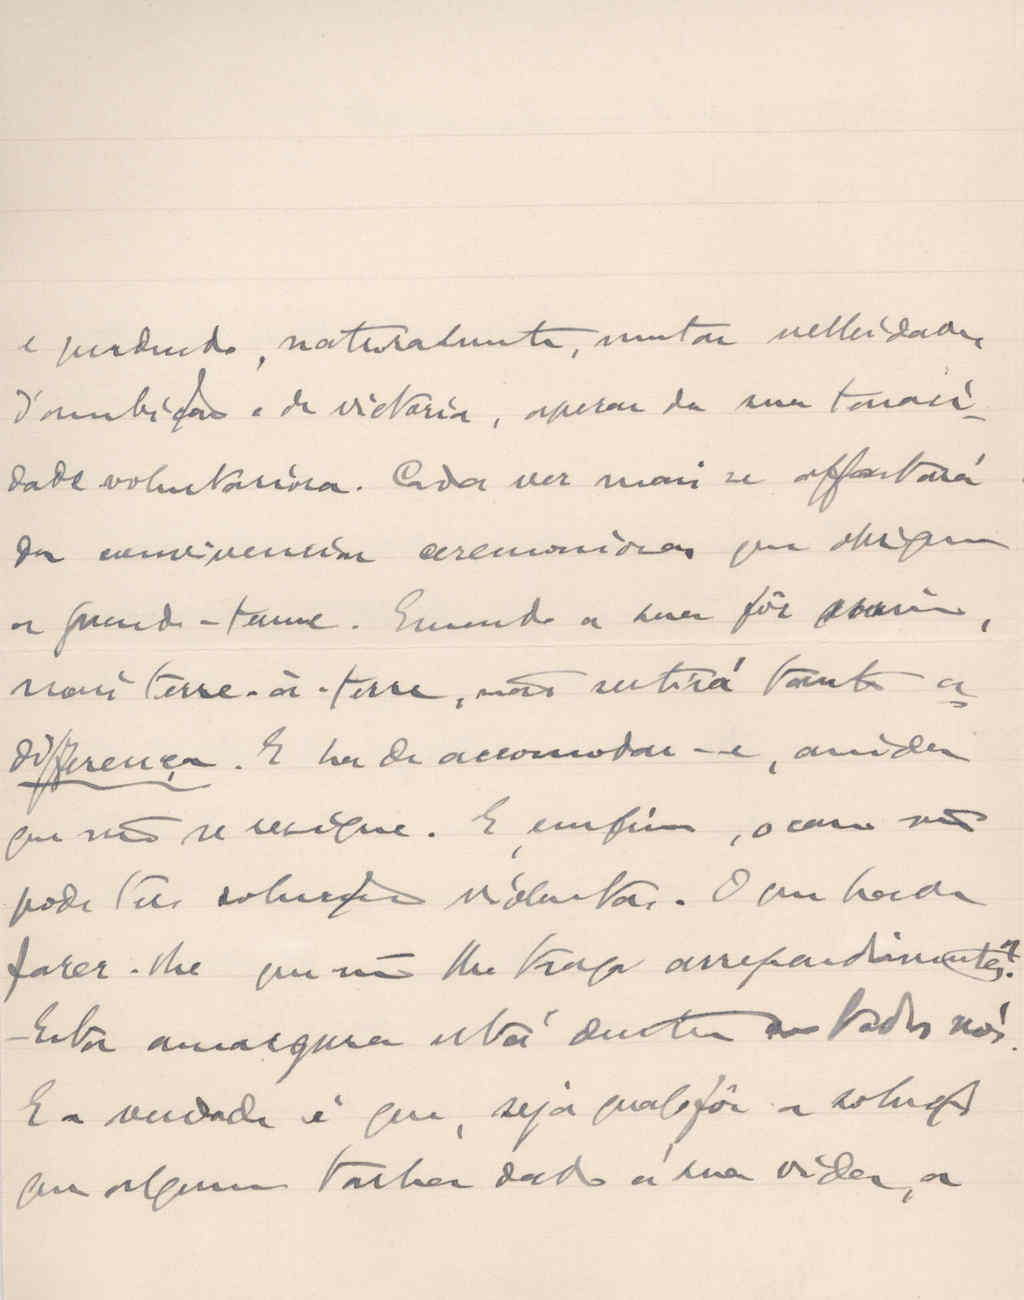 e perdendo, naturalmente, muitas velleidades
d'ambição e de victoria, apesar da sua tenaci-
dade voluntariosa. Cada vez mais se affastará
da convivencia ceremoniosa que obrigam
a grande-tenue. E quando a sua fôr assim,
mais terre-à-terre, não sentirá tanto a
differença. E ha de accomodar-se, ainda
que não se resigne. E, emfim, o caso não
pode ter solução violenta. O que ha de
fazer-lhe que não lhe traga arrependimentos?
-Esta amargura está dentro de todos nós.
E a verdade é que, seja qual fôr a solução
que alguem tenha dado á sua vida, a